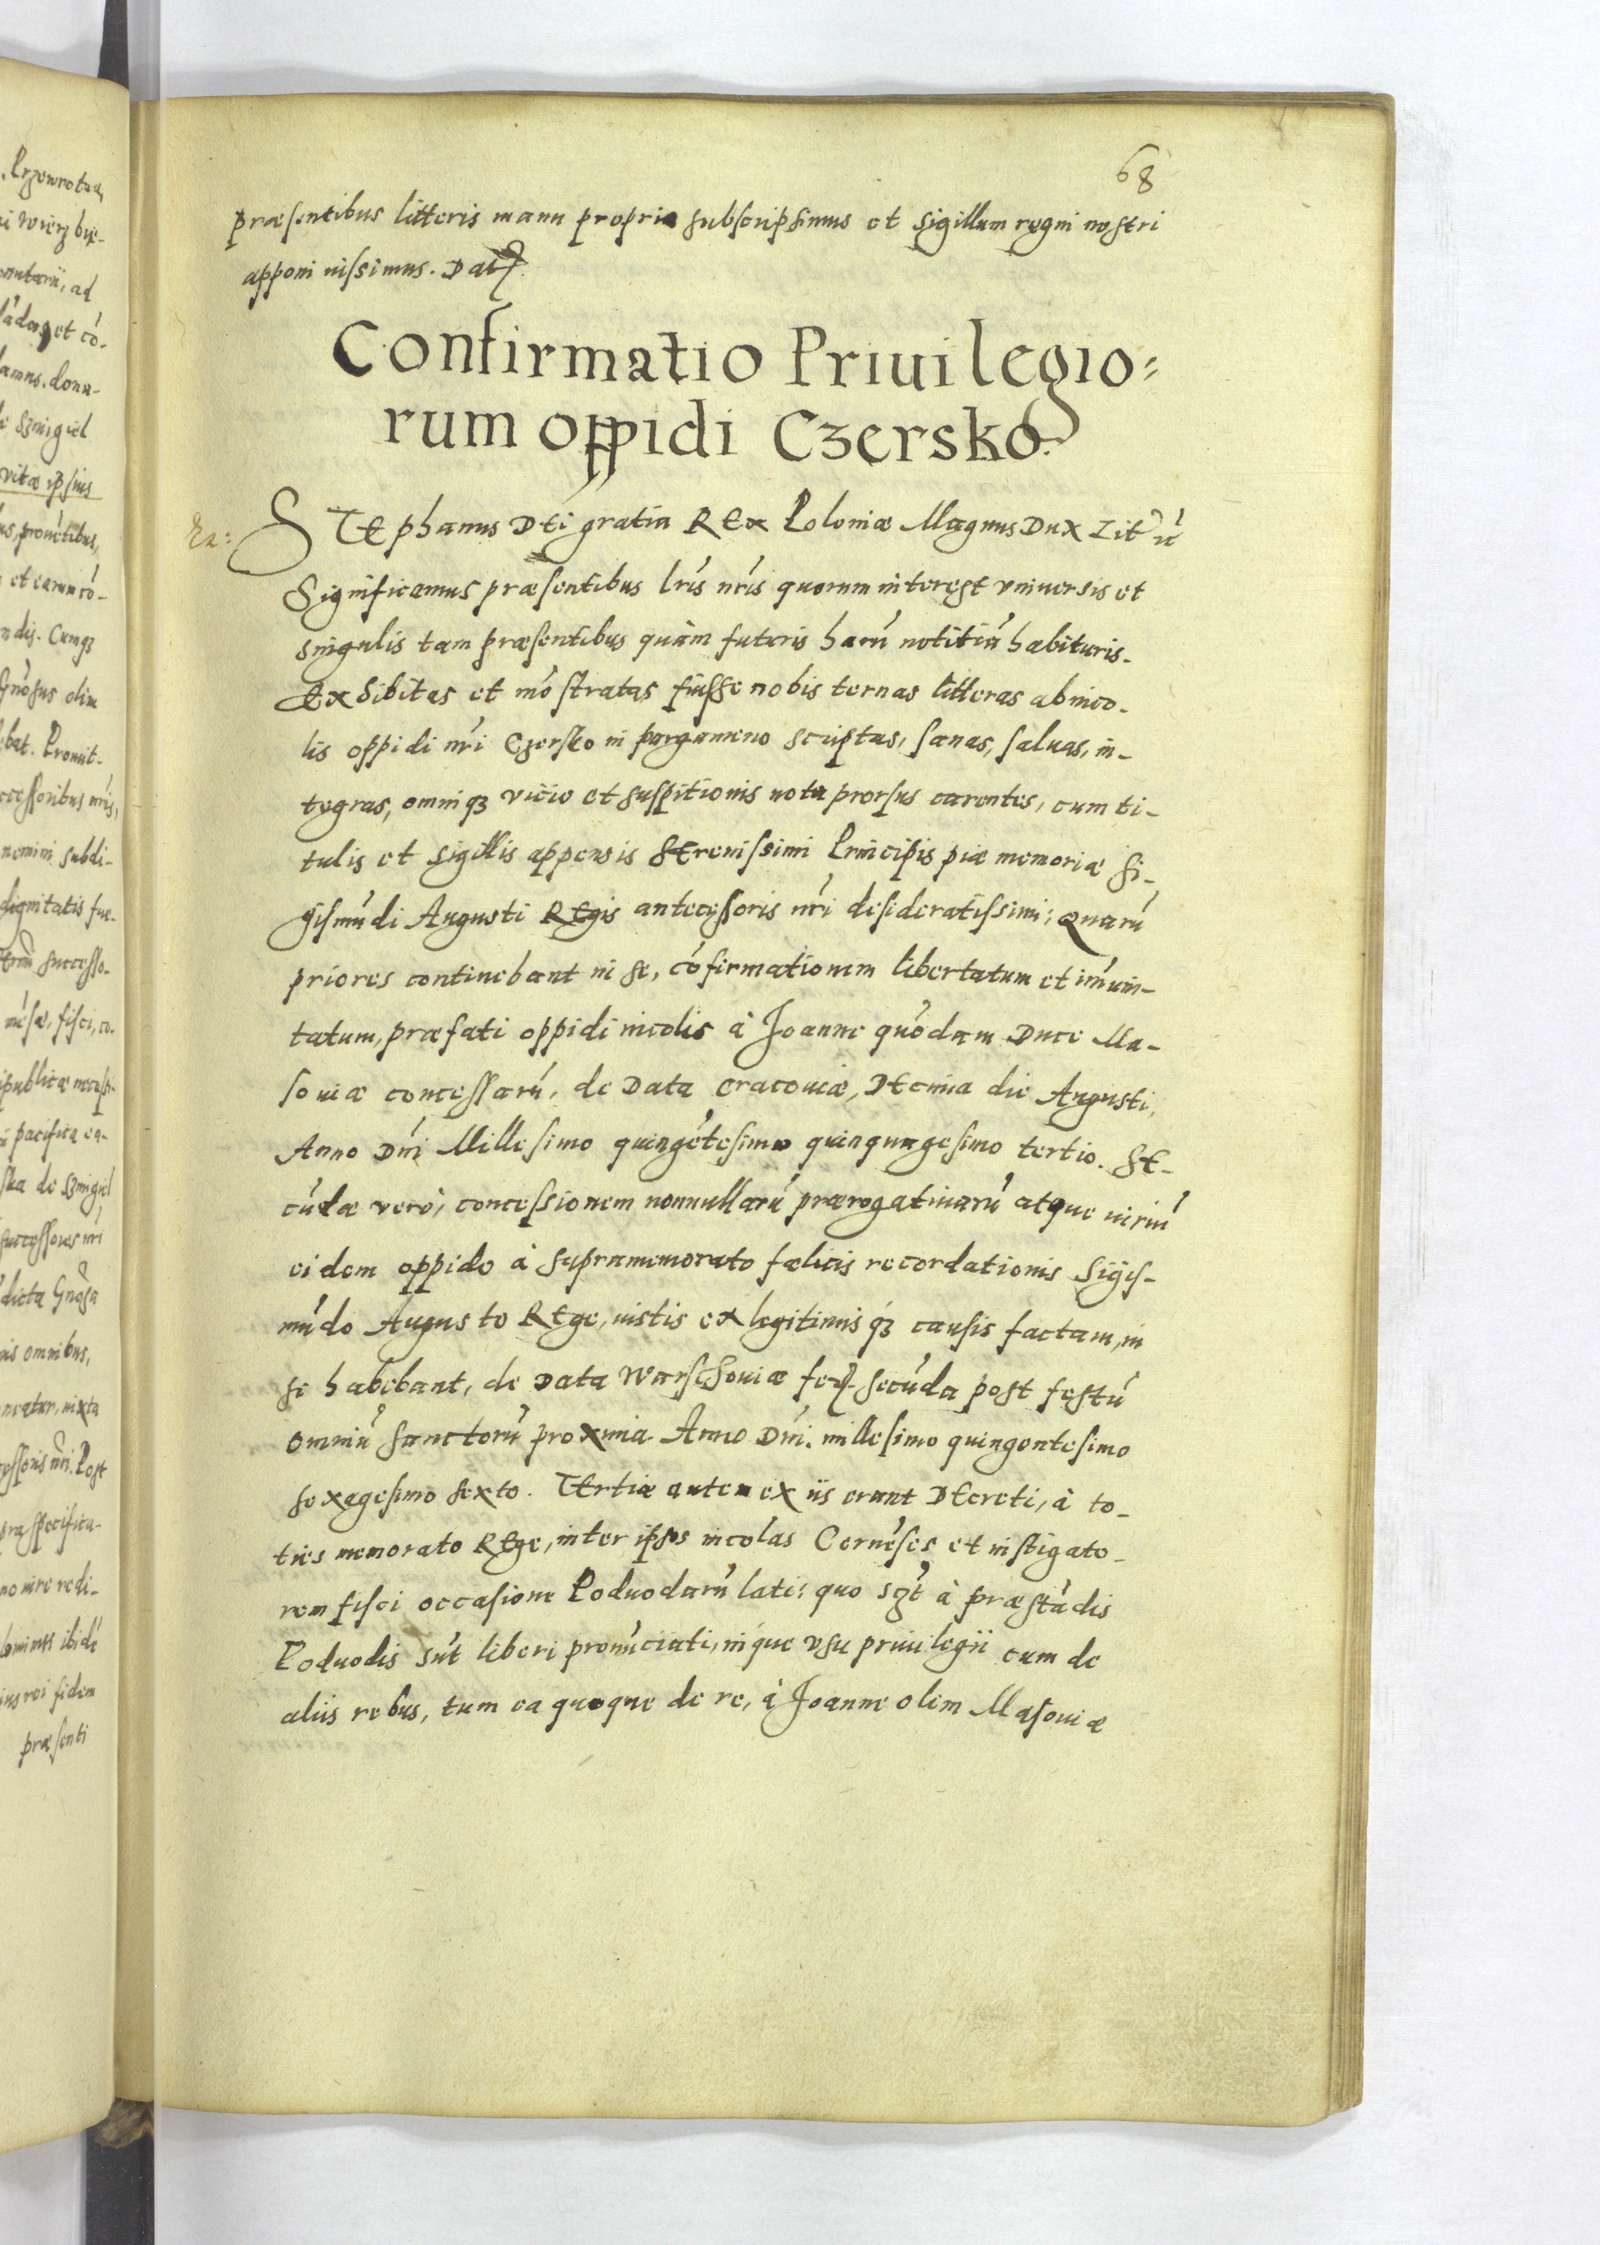 68
præsentibus litteris manu propria subscripsimus et sigillum regni nostri
apponi iussimus. Dat.
Confirmatio Priuilegio=
rum oppidi Czersko.
STEphanus DEi gratia REx Poloniæ Magnus Dux Lit ú
Significamus præsentibus lrís nrís quorum interest vniuersis et
singulis tam præsentibus quàm futuris harú notitiá habituris.
Exhibitas et móstratas fuisse nobis ternas litteras ab inco-
lis oppidi nrí Czersko in pargameno scriptas, sanas, saluas, in-
tegras, omniqꝫ vicio et suspitionis nota prorsus carentes, cum ti-
tulis et sigillis appensis SErenissimi Principis piæ memoriæ Si-
gismúdi Augusti REgis antecessoris nrí desideratissimi; Quarú
priores continebant in se, cófirmationem libertatum et imúni-
tatum, præfati oppidi incolis à Joanne quódam Duce Ma-
souiæ concessarú, de Data Cracouiæ, DEcima die Augusti,
Anno Dní Millesimo quingétesimo quinquagesimo tertio. SE-
cúdæ verò, concessionem nonnullarú prærogatiuarú atque iuriú
eidem oppido à supramemorato fælicis recordationis Sigis-
múdo Augusto REge, iustis ex legitimis qꝫ causis factam, in
se habebant, de Data Warschouiæ fer. secúda post festú
omniú sanctorú proxima Anno Dní. millesimo quingentesimo
sexagesimo sexto. TErtiæ autem ex iis erant DEcreti, à to-
ties memorato REge, inter ipsos incolas Cernéses et instigato-
rem fisci occasione Poduodarú lati: quo sczt à præstádis
Poduodis sút liberi pronúciati, inque vsu priuilegii cum de
aliis rebus, tum ea quoque de re, à Joanne olim Masouiæ